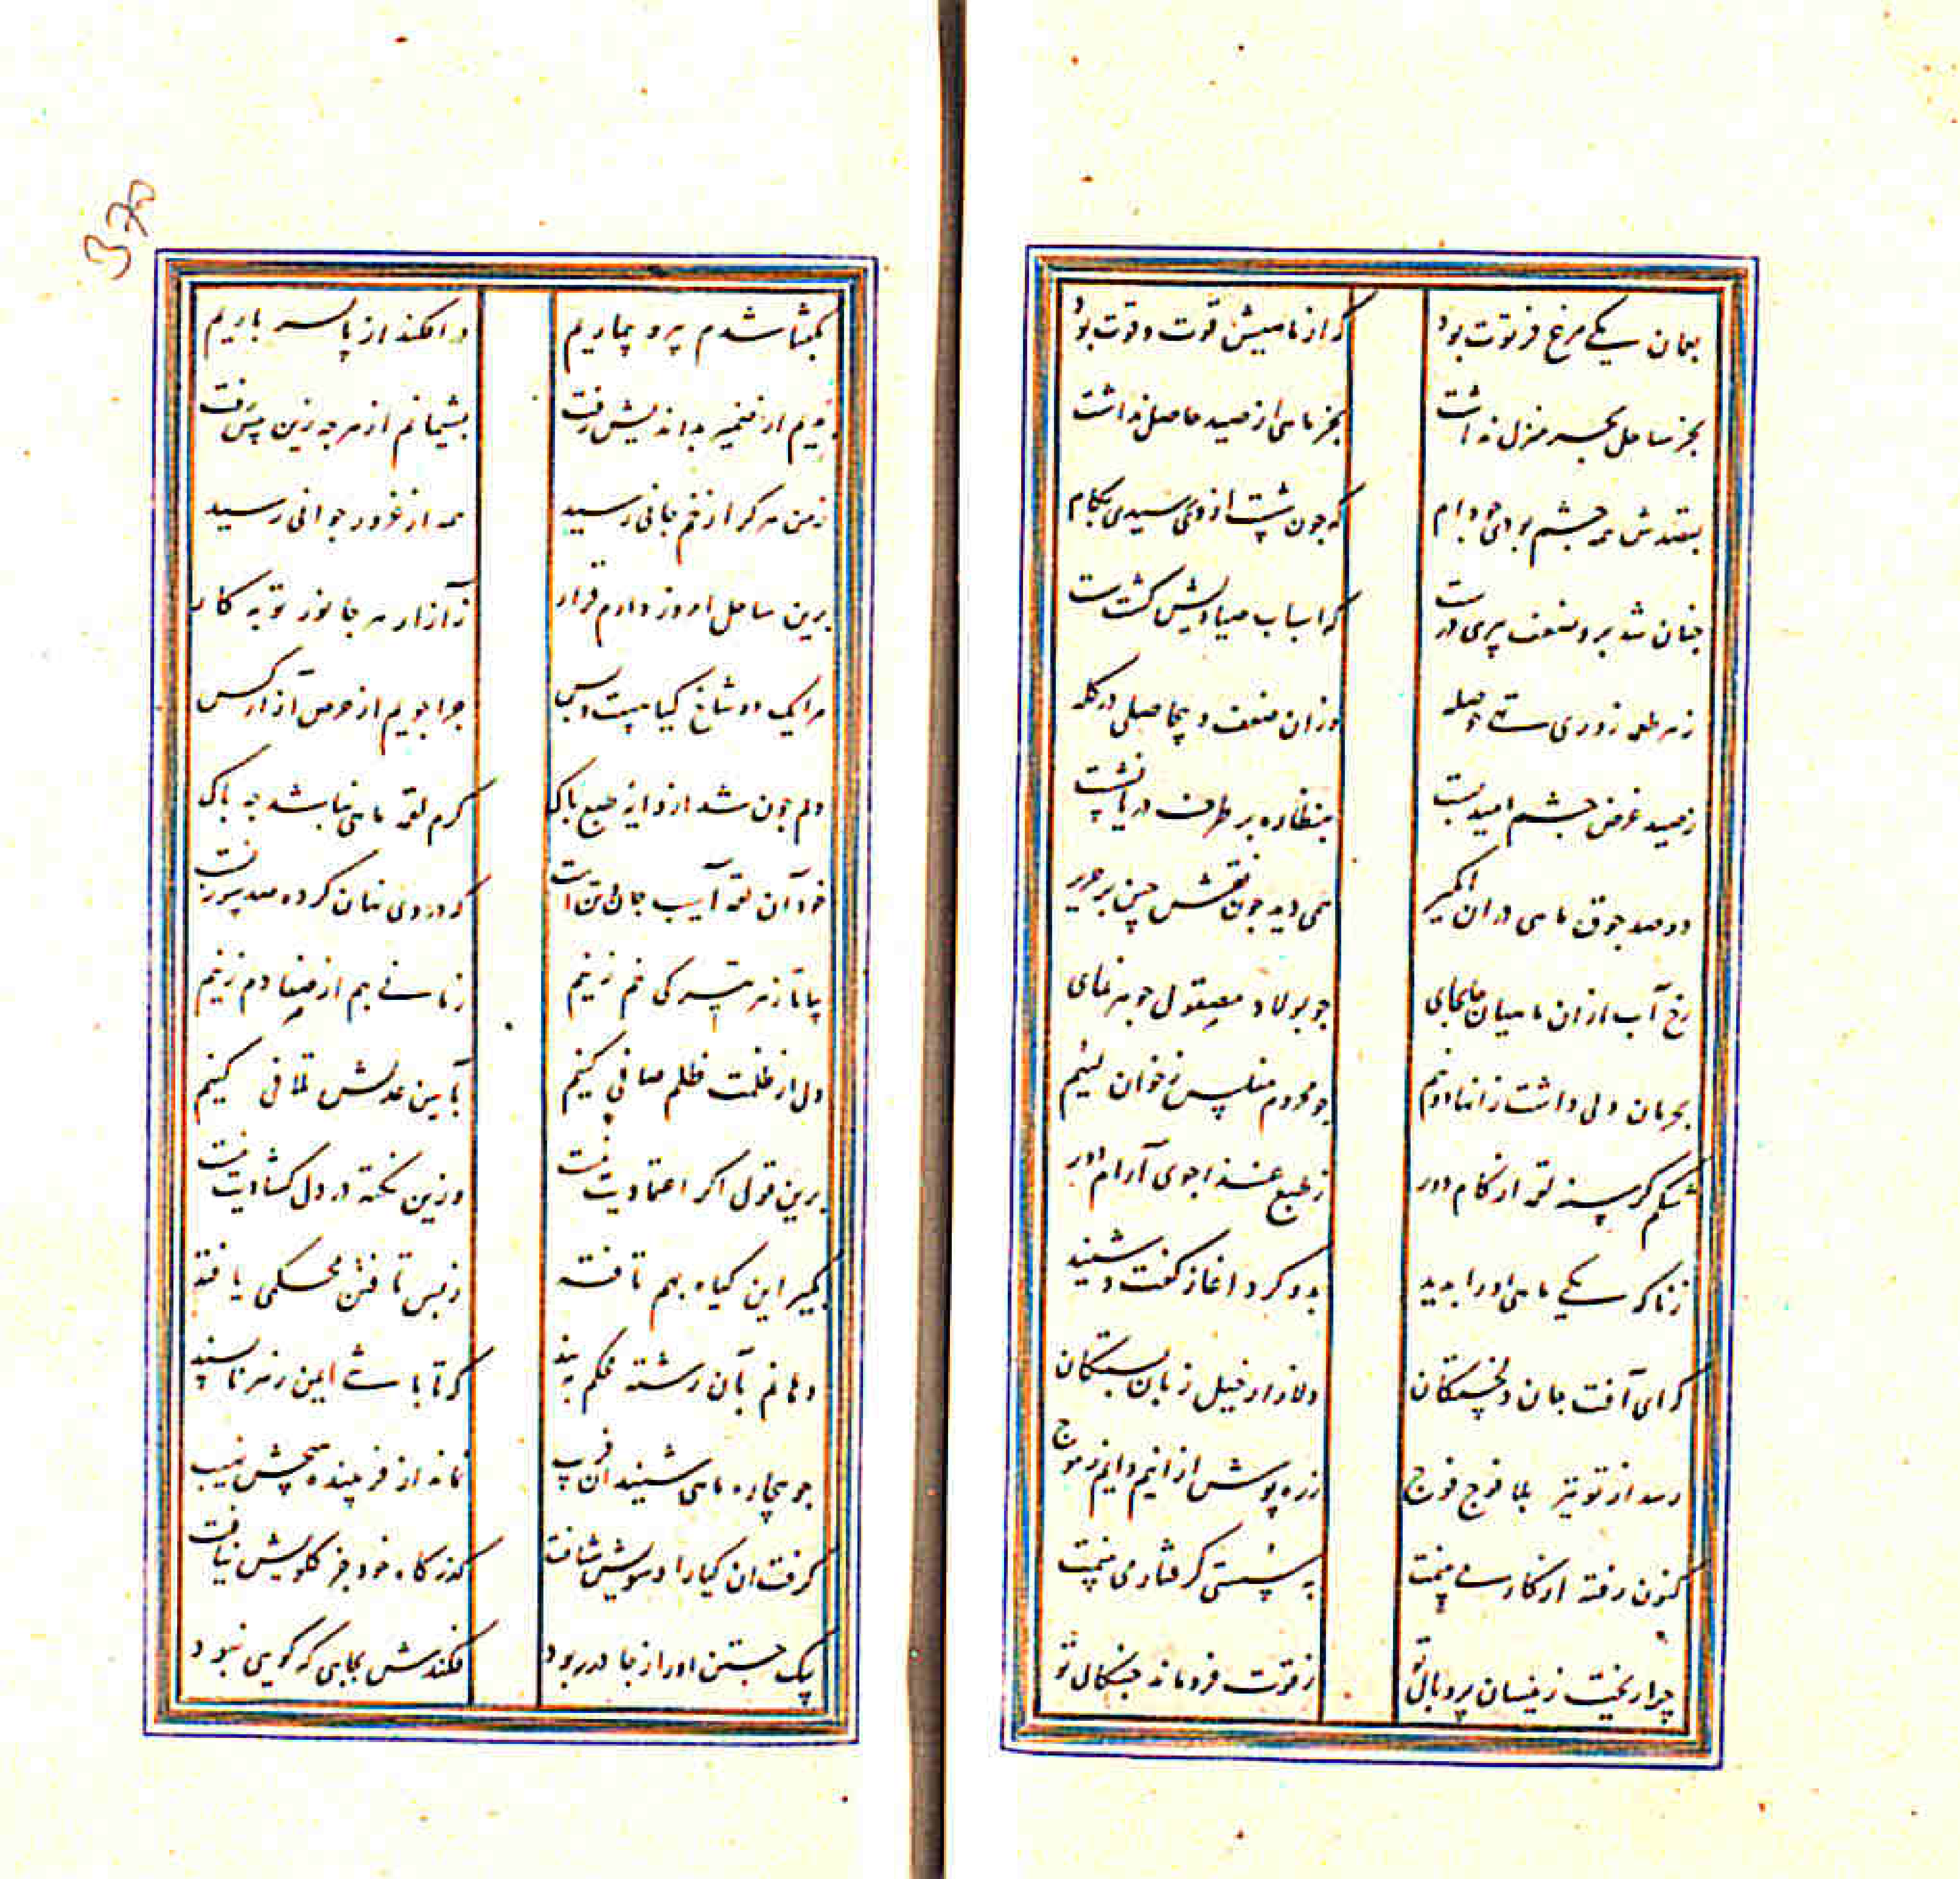 بعمان یکے مرغ فرتوت بود
که از ماهیش قوت و قوت بود
بجز ساحل بحر منزل نداشت
بجز ماهی از صید حاصل نداشت
بقصدش همه چشم بودی چو دام
که چون شست ازوی رسیدی بکام
چنان شد برو ضعف پیری درست
که اسباب صیادیش گشت سست
ز صید غرض چشم امید بست
بنظاره بر طرف دریا نشست
دو صد جوق ماهی در ان آبگیر
همی دید چون نقش چین بر حریر
رخ آب از ان ماهیان جابجای
چو پولاد مصقول جوهر نمای
بحرمان دلی داشت زانها دونیم
چو محروم مفلس ز خوان لئیم
شکم گرسنه لقمه از کام دور
ز طبع غذا جوی آرام دور
زناگه یکے ماهی او را بدید
بدو کرد اغاز گفت و شنید
که ای آفت جان دلخستگان
دلازار خیل زبان بستگان
رسد از تو تیر بلا فوج فوج
زره پوش ازانیم دایم ز موج
کنون رفته از کار می بینمت
به سستی گرفتار می بینمت
چرا ریخت زینسان پر و بال تو
ز قوت فرو مانده چنگال تو
بگفتا شدم پیر و بیماریم
در افکند از پا سر باریم
بشیمانم از هرچه زین پیش رفت
ز من هر کرا زخم جانی رسید
همه از غرور جوانی رسید
برین ساحل امروز دارم قرار
ز آزار هر جانور توبه کار
مرا یک دو شاخ گیا هست و بس
چرا جویم از حرص آزار کس
دلم چون شد از دایهٔ طبع پاک
گرم لقمه ماهی نباشد چه باک
خود آن لقمه آسیب جان و تن است
بیا تا ز سر تیرگی کم زنیم
زمانے بهم از صفا دم زنیم
دل از ظلمت ظلم صافی کنیم
بآیین عدلش تلافی کنیم
برین قول اگر اعتمادیت نیست
وزین نکته در دل گشادیت نیست
بگیر این گیاه بهم تافته
ز بس تافتن محکمی یافته
دهانم بآن رشته محکم ببند
که تا باشے ایمن ز هر ناپسند
چو بیچاره ماهی شنید ان فریب
نماند از فریبنده هیچش نهیب
گرفت ان گیا را و سویش شتافت
گذرگاه خود جز گلویش نیافت
بیک جستن او را ز جا در ربود
فکندش بجایی که گویی نبود